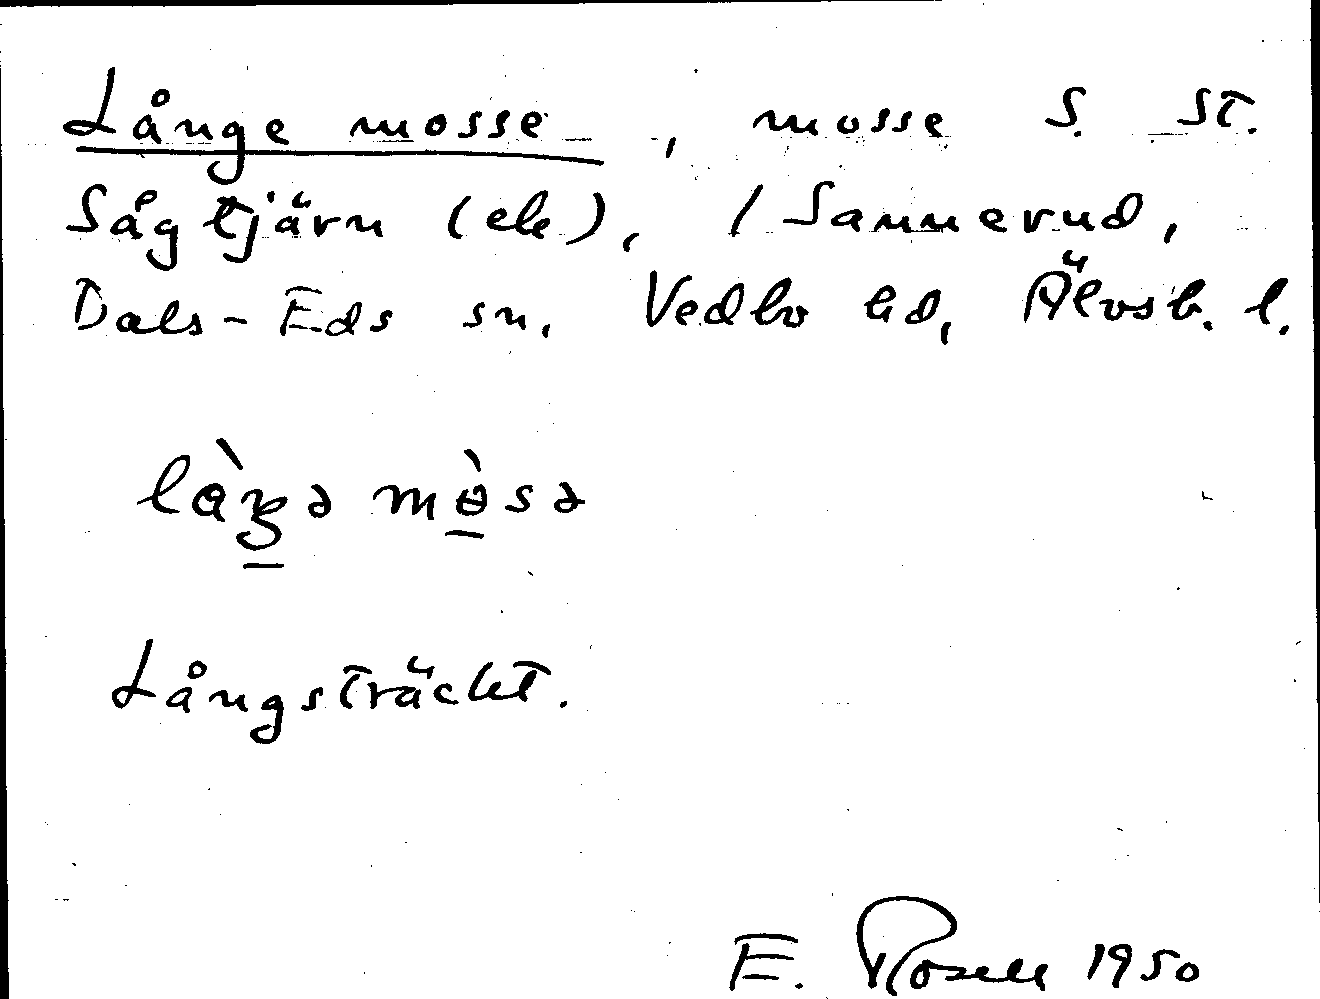 Långe mosse, mosse S. St.
Sågtjärn (ek), / Sannerud,
Dals-Eds sn, Vedbo hd, Älvsb. l.
làŋə mòsə
Långsträckt.
E. Rosell 1950